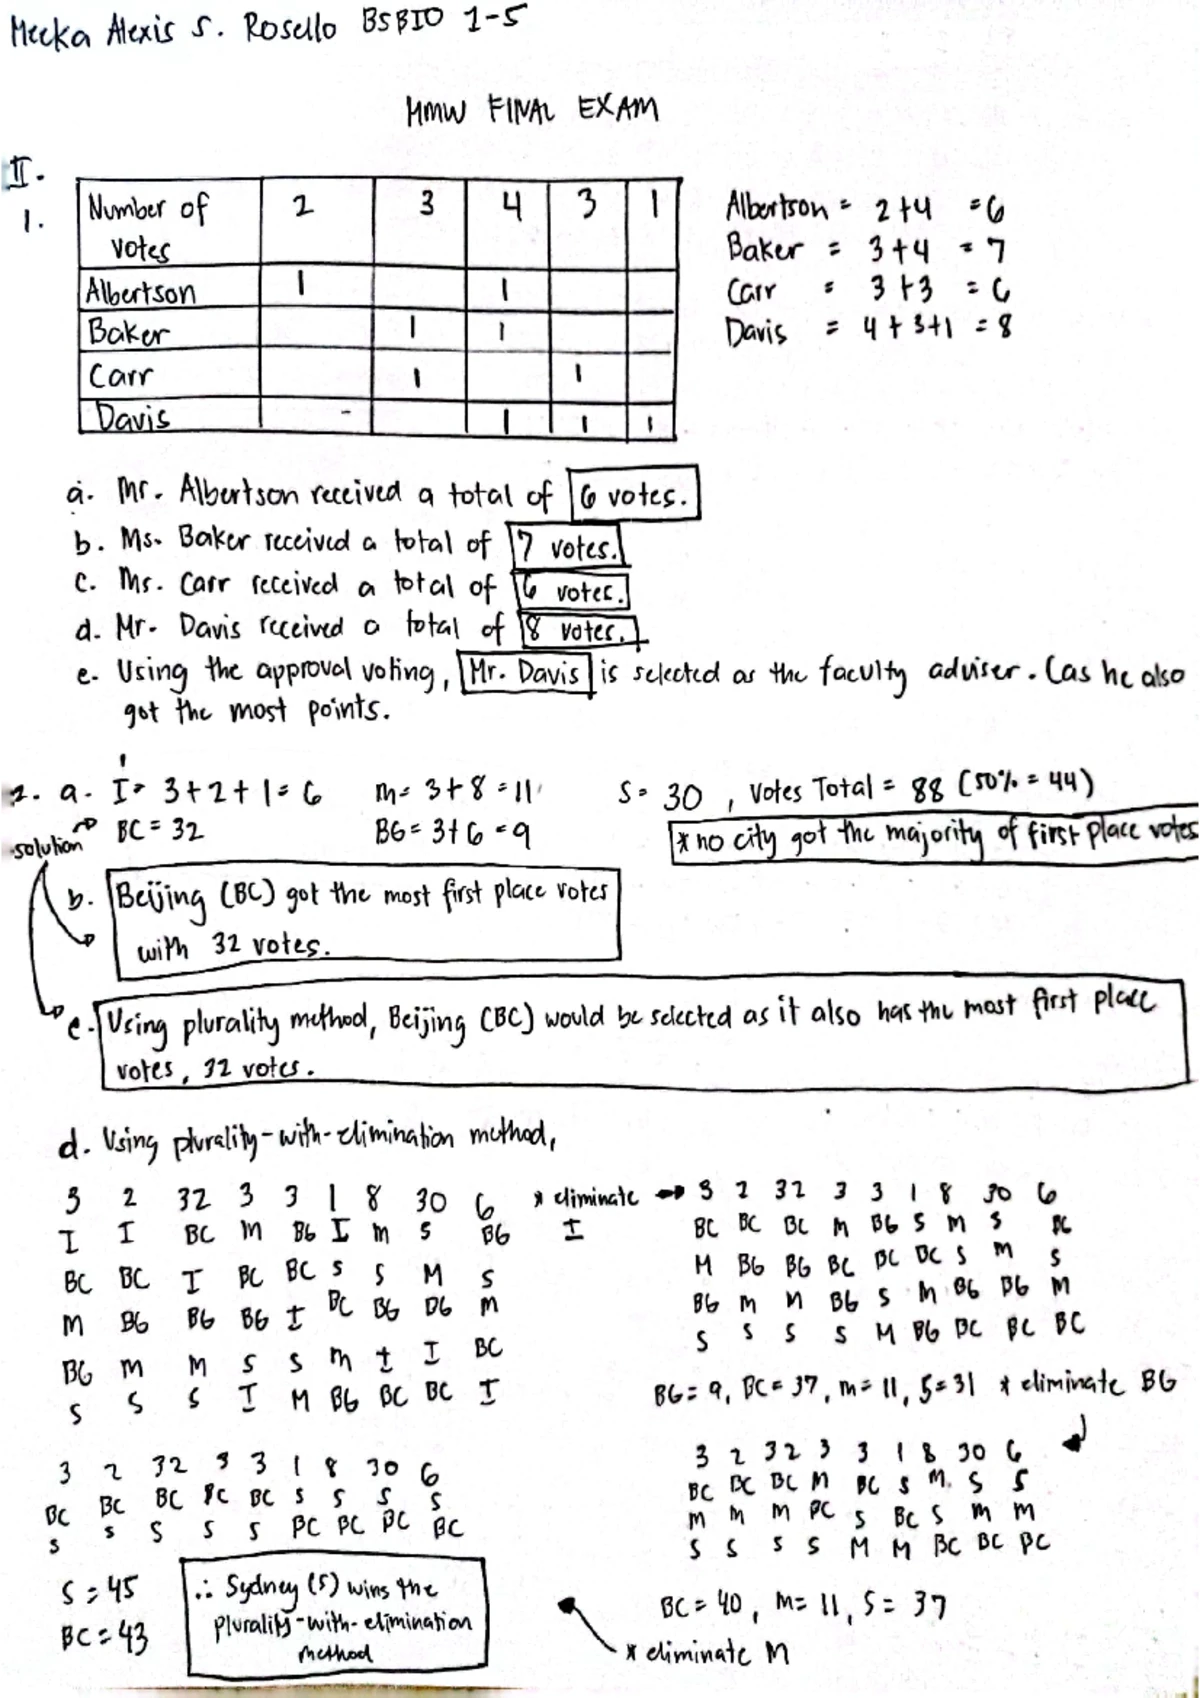 Mecka Alexis S. Rosello BSBIO 1-5
MMW FINAL EXAM
II.
1.
Number of votes 2 3 4 3 1
Albertson 1 1
Baker 1 1
Carr 1 1
Davis 1 1 1
Albertson = 2+4 = 6
Baker = 3+4 = 7
Carr = 3+3 = 6
Davis = 4+3+1 = 8
a. Mr. Albertson received a total of 6 votes.
b. Ms. Baker received a total of 7 votes.
c. Ms. Carr received a total of 6 votes.
d. Mr. Davis received a total of 8 votes.
e. Using the approval voting, Mr. Davis is selected as the faculty adviser. (as he also
got the most points.
2. a. I = 3+2+1 = 6 m = 3+8 = 11 S = 30, Votes Total = 88 (50% = 44)
solution BC = 32 BG = 3+6 = 9 * no city got the majority of first place votes
b. Beijing (BC) got the most first place votes
with 32 votes.
c. Using plurality method, Beijing (BC) would be selected as it also has the most first place
votes, 32 votes.
d. Using plurality-with-elimination method,
3 2 32 3 3 1 8 30 6 * eliminate
I I BC M BG I m S BG I
BC BC I BC BC S S M S
m BG BG BG I BC BG BG m
BG m M S S m I I BC
S S S I M BG BC BC I
3 2 32 3 3 1 8 30 6
BC BC BC M BG S M S BG
M BG BG BC BC BC S m S
BG m m BG S m BG BG M
S S S S M BG BC BC BC
BG = 9, BC = 37, m = 11, S = 31 * eliminate BG
3 2 32 3 3 1 8 30 6
BC BC BC M BC S M. S S
m m m BC S BC S m m
S S S S M M BC BC BC
BC = 40, m = 11, S = 37
* eliminate M
3 2 32 3 3 1 8 30 6
BC BC BC BC BC S S S S
S S S S S BC BC BC BC
S = 45
BC = 43
∴ Sydney (S) wins the
plurality-with-elimination
method